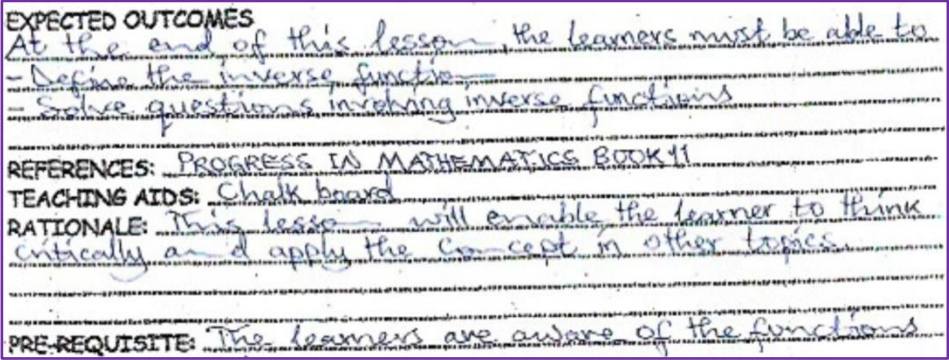 EXPECTED OUTCOMES
At the end of this lesson, the learners must be able to
- Define the inverse function
- Solve questions involving inverse functions
REFERENCES: PROGRESS IN MATHEMATICS BOOK 11
TEACHING AIDS: Chalk board
RATIONALE: This lesson will enable the learner to think
critically and apply the concept in other topics.
PRE-REQUISITE: The learners are aware of the functions